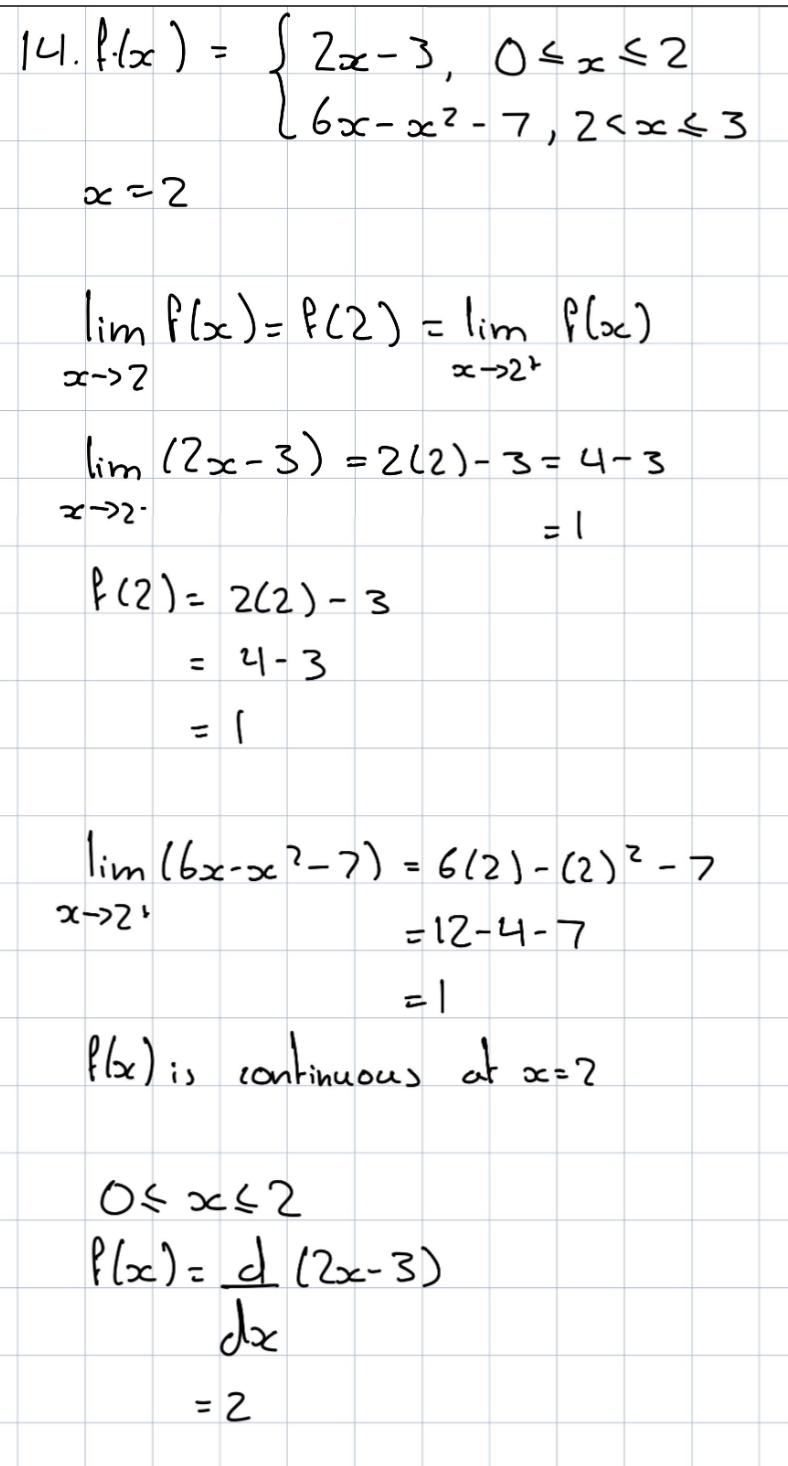 14. f(x) = { 2x-3, 0 ≤ x ≤ 2
6x - x² - 7, 2 < x ≤ 3
x = 2
lim f(x) = f(2) = lim f(x)
x→2 x→2⁺
lim (2x-3) = 2(2)-3 = 4-3
x→2⁻
= 1
f(2) = 2(2) - 3
= 4-3
= 1
lim (6x-x²-7) = 6(2)-(2)²-7
x→2⁺
= 12-4-7
= 1
f(x) is continuous at x=2
0 ≤ x ≤ 2
f(x) = d (2x-3)
dx
= 2